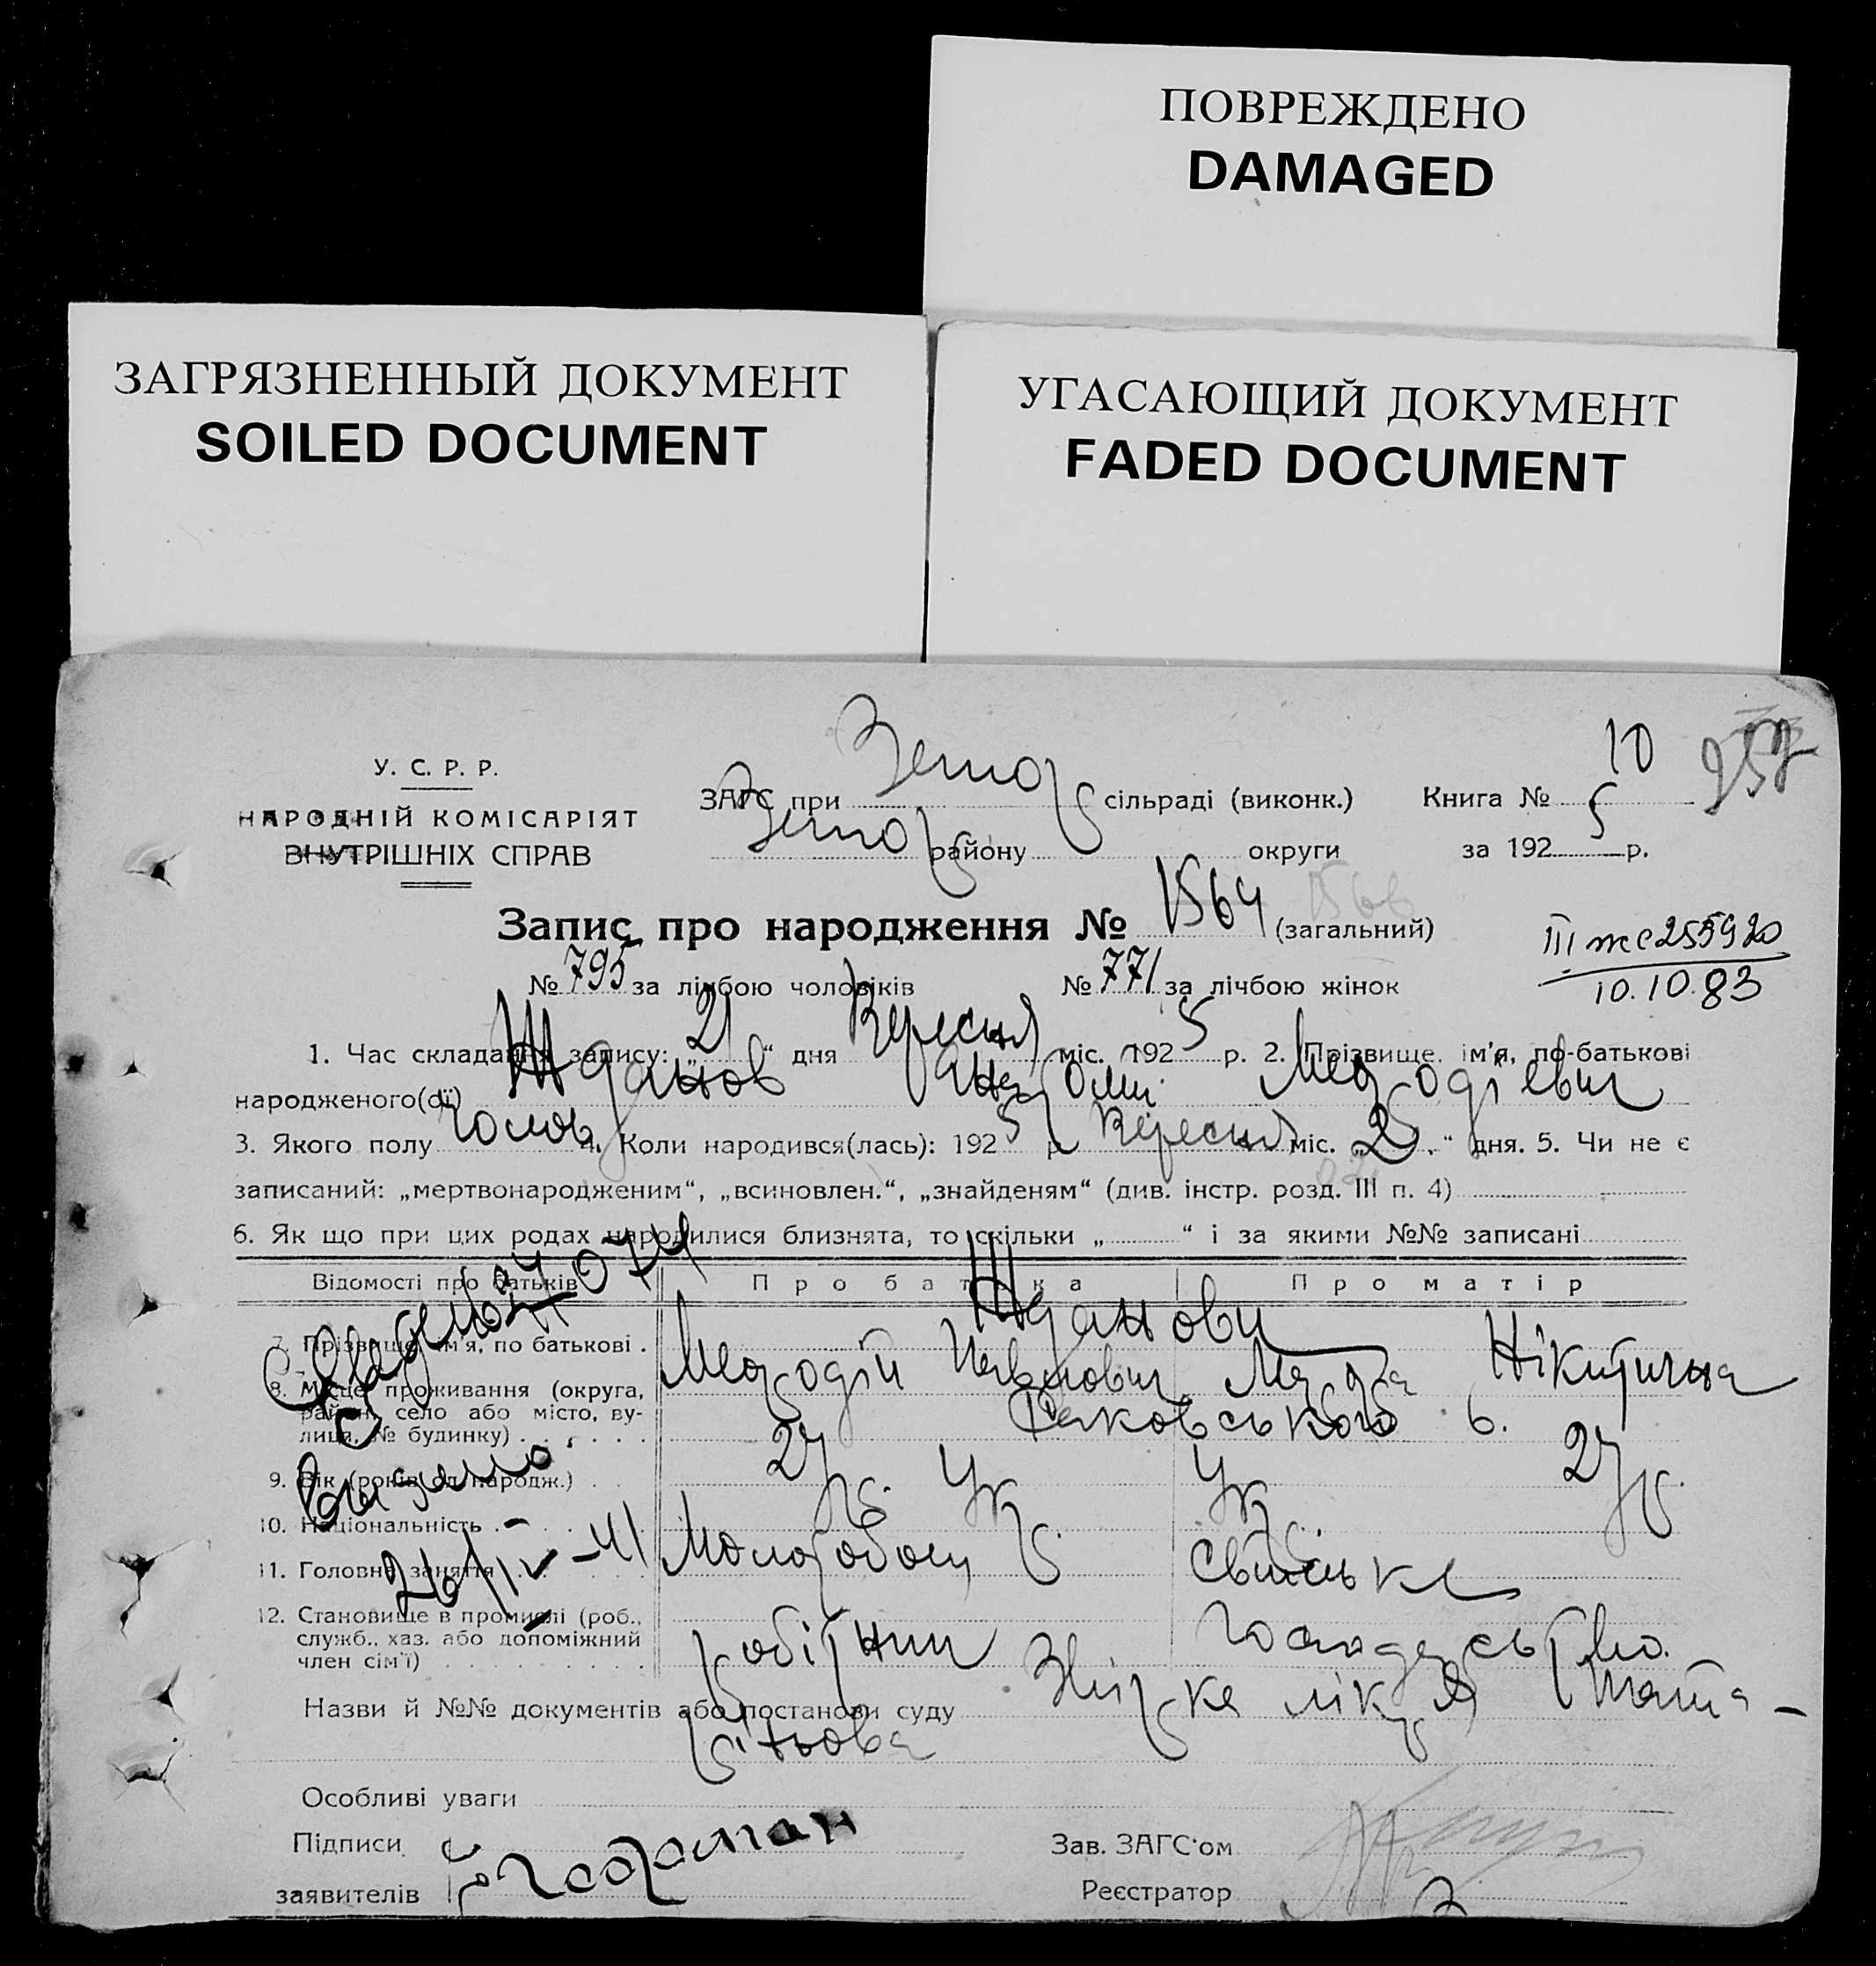 ПОВРЕЖДЕНО
DAMAGED
ЗАГРЯЗНЕННЫЙ ДОКУМЕНТ
SOILED DOCUMENT
УГАСАЮЩИЙ ДОКУМЕНТ
FADED DOCUMENT
У. С. Р. Р.
НАРОДНІЙ КОМІСАРІЯТ
ВНУТРІШНІХ СПРАВ
10
ЗАГС при сільраді (виконк.) Книга №
району округи за 1925 р.
Запис про народження № 1564 (загальний)
№ 795 за лічбою чоловіків № 771 за лічбою жінок
255920
10.10.83
1. Час складання запису: „21“ дня Вересня міс. 1925 р. 2. Прізвище, ім'я, по-батькові
народженого(ої) Жданов Мефодієвич
3. Якого полу Чолов 4. Коли народився(лась): 1925 р Вересня міс. „2“ дня. 5. Чи не є
записаний: „мертвонародженим“, „всиновлен.“, „знайденям“ (див. інстр. розд. III п. 4)
6. Як що при цих родах народилися близнята, то скільки „ “ і за якими №№ записані
Відомості про батьків Про батька Про матір
Жданови
7. Прізвище, ім'я, по батькові . Мефодій Павлович Нікитична
8. Місце проживання (округа,
район, село або місто, ву-
лиця, № будинку) . . . . . . Раковського 6.
9. Вік (років од народж.) . . 27 р. 27 р.
10. Національність . . . . . Укр Укр.
11. Головне заняття Молотобоєц Свійське
12. Становище в промислі (роб.,
служб., хаз. або допоміжний
член сім'ї) . . . . . . . . . робітник господарство.
Видано
26/IV-41
Назви й №№ документів або постанови суду
Особливі уваги
Підписи Зав. ЗАГС'ом
заявителів Реєстратор